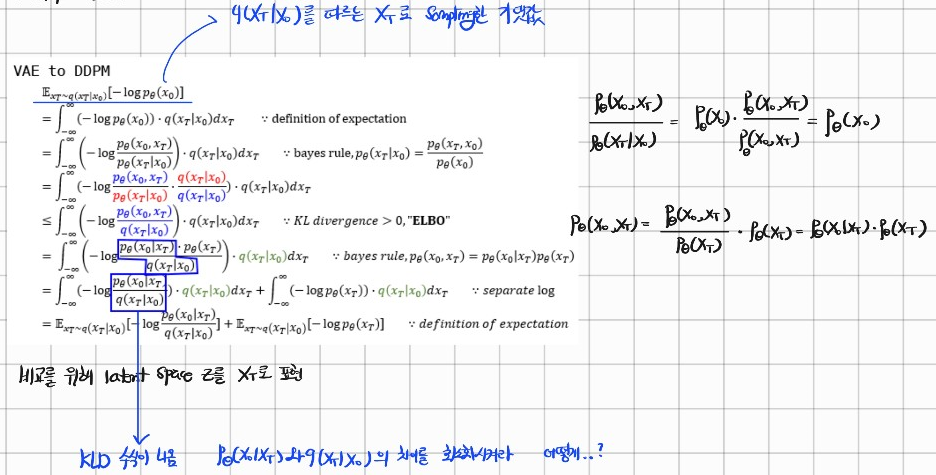 q(x_T|x_0)를 따르는 x_T로 Sampling한 기댓값
VAE to DDPM
𝔼_{x_T~q(x_T|x_0)}[−log p_θ(x_0)]
= ∫_{−∞}^{∞} (−log p_θ(x_0)) · q(x_T|x_0)dx_T ∵ definition of expectation
= ∫_{−∞}^{∞} (−log p_θ(x_0, x_T) / p_θ(x_T|x_0)) · q(x_T|x_0)dx_T ∵ bayes rule, p_θ(x_T|x_0) = p_θ(x_T, x_0) / p_θ(x_0)
= ∫_{−∞}^{∞} (−log p_θ(x_0, x_T) / p_θ(x_T|x_0) · q(x_T|x_0) / q(x_T|x_0)) · q(x_T|x_0)dx_T
≤ ∫_{−∞}^{∞} (−log p_θ(x_0, x_T) / q(x_T|x_0)) · q(x_T|x_0)dx_T ∵ KL divergence > 0, "ELBO"
= ∫_{−∞}^{∞} (−log p_θ(x_0|x_T) · p_θ(x_T) / q(x_T|x_0)) · q(x_T|x_0)dx_T ∵ bayes rule, p_θ(x_0, x_T) = p_θ(x_0|x_T)p_θ(x_T)
= ∫_{−∞}^{∞} (−log p_θ(x_0|x_T) / q(x_T|x_0)) · q(x_T|x_0)dx_T + ∫_{−∞}^{∞} (−log p_θ(x_T)) · q(x_T|x_0)dx_T ∵ separate log
= 𝔼_{x_T~q(x_T|x_0)}[−log p_θ(x_0|x_T) / q(x_T|x_0)] + 𝔼_{x_T~q(x_T|x_0)}[−log p_θ(x_T)] ∵ definition of expectation
p_θ(x_0, x_T) / p_θ(x_T|x_0) = p_θ(x_0) · p_θ(x_0, x_T) / p_θ(x_0, x_T) = p_θ(x_0)
p_θ(x_0, x_T) = p_θ(x_0, x_T) / p_θ(x_T) · p_θ(x_T) = p_θ(x_0|x_T) · p_θ(x_T)
비교를 위해 latent space z를 x_T로 표현
KLD 수식이 나옴 p_θ(x_0|x_T)와 q(x_T|x_0)의 차이를 최소화시켜라 어떻게..?